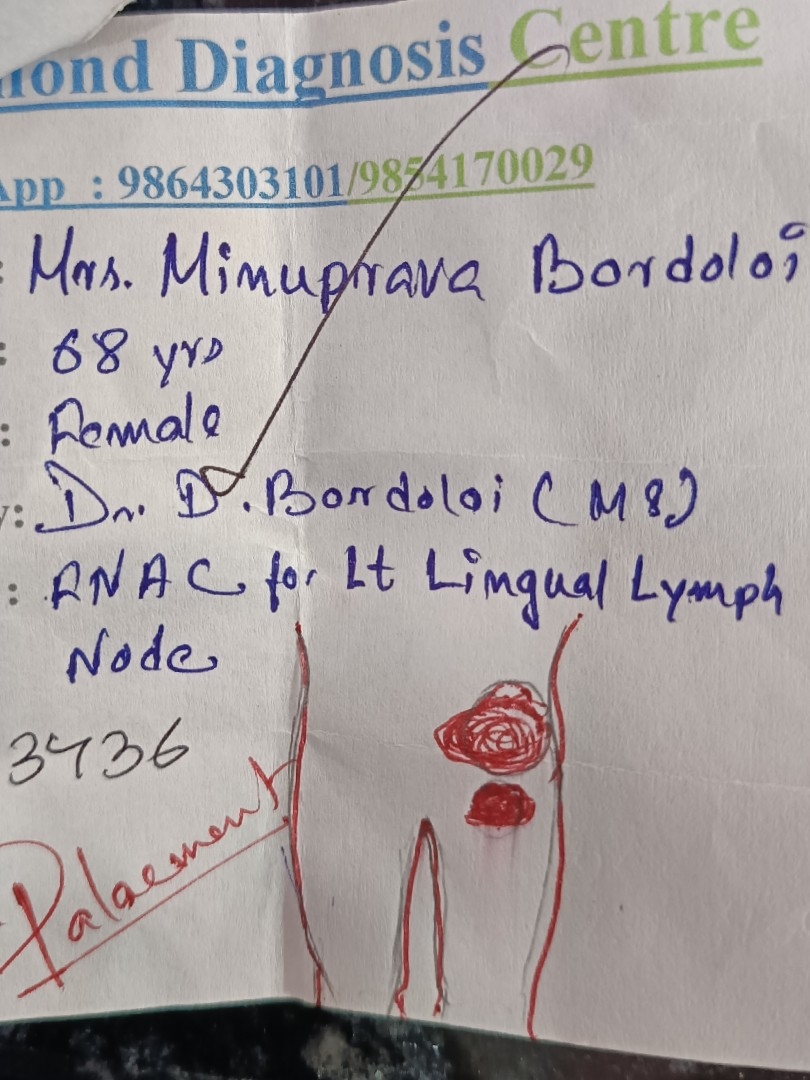 mond Diagnosis Centre
App : 9864303101/9854170029
: Mrs. Minuprava Bordoloi
: 68 yrs
: Female
y: Dr. D. Bordoloi (MS)
: FNAC for Lt Lingual Lymph
Node
3436